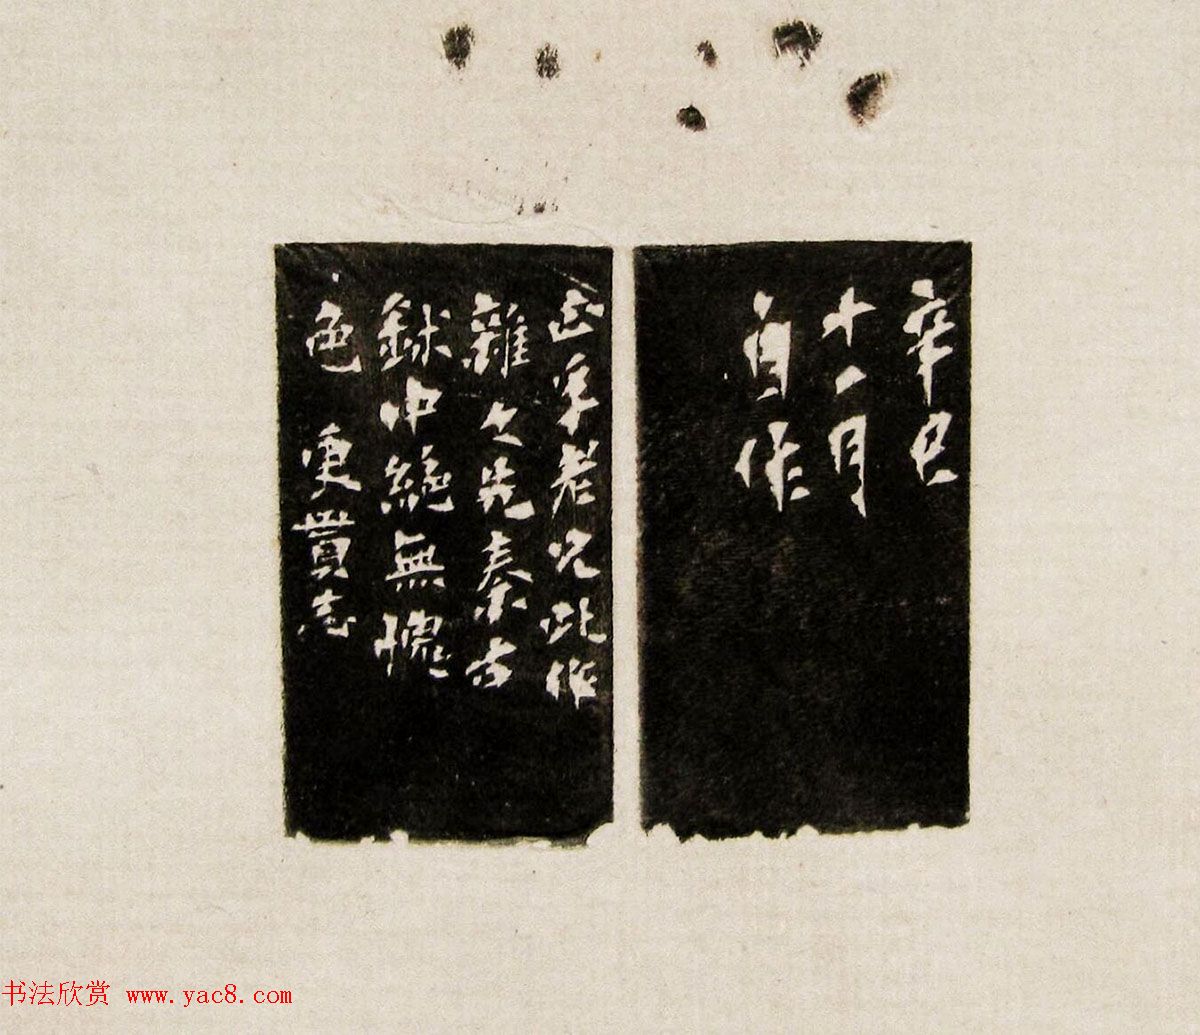 辛巳
十一月
自作
正孚老兄此作
雜之先秦古
鉨中絕無愧
色 更黃志
书法欣赏 www.yac8.com